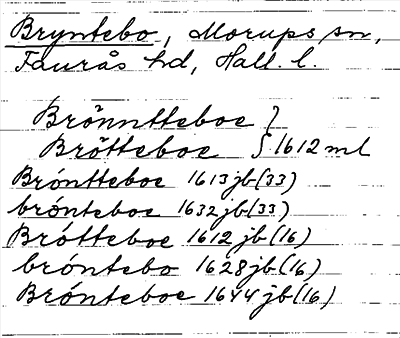 Bryntebo, Morups sn,
Faurås hd, Hall. l.
Brönntteboe }
Brötteboe } 1612 ml
Brónttteboe 1613 jb (33)
brónteboe 1632 jb (33)
Brótteboe 1612 jb (16)
bróntebo 1628 jb (16)
Brónteboe 1644 jb (16)